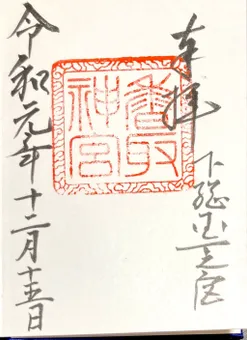 奉拝
下總国一之宮
香取神宮
令和元年十二月十五日